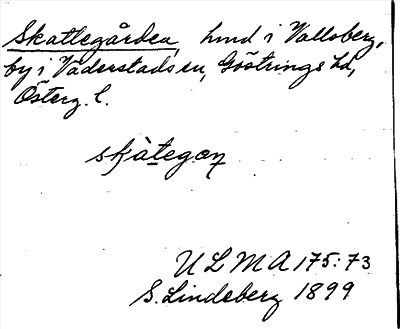 Skattegården, hmd i Valloberg,
by i Väderstads sn, Göstrings hd,
Österg. l.
skàtegaɳ
U L M A 175:73
S. Lindeberg 1899